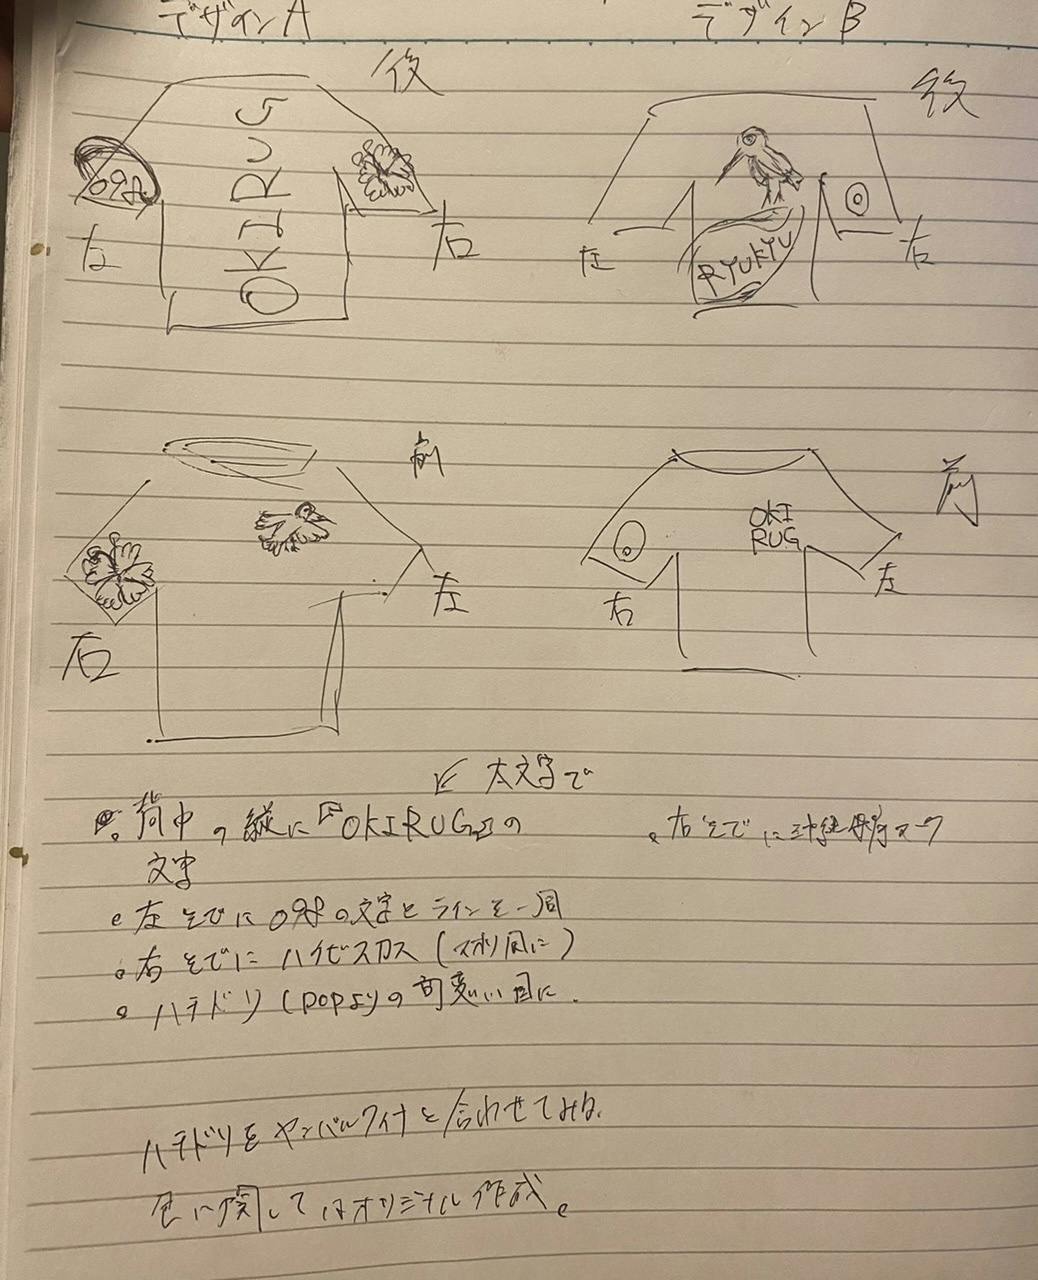 デザインA
デザインB
後
OKIRUG
098
左
右
後
RYUKYU
左
右
前
右
左
前
OKI
RUG
右
左
太文字で
背中の縦に『OKIRUG』の
文字
左そでに098の文字とラインを一周
右そでにハイビスカス(
ハチドリ(popよりの可愛い目に.
右そでに マーク
ハチドリをヤンバルクイナと合わせてみる.
色に関してはオリジナル作成。